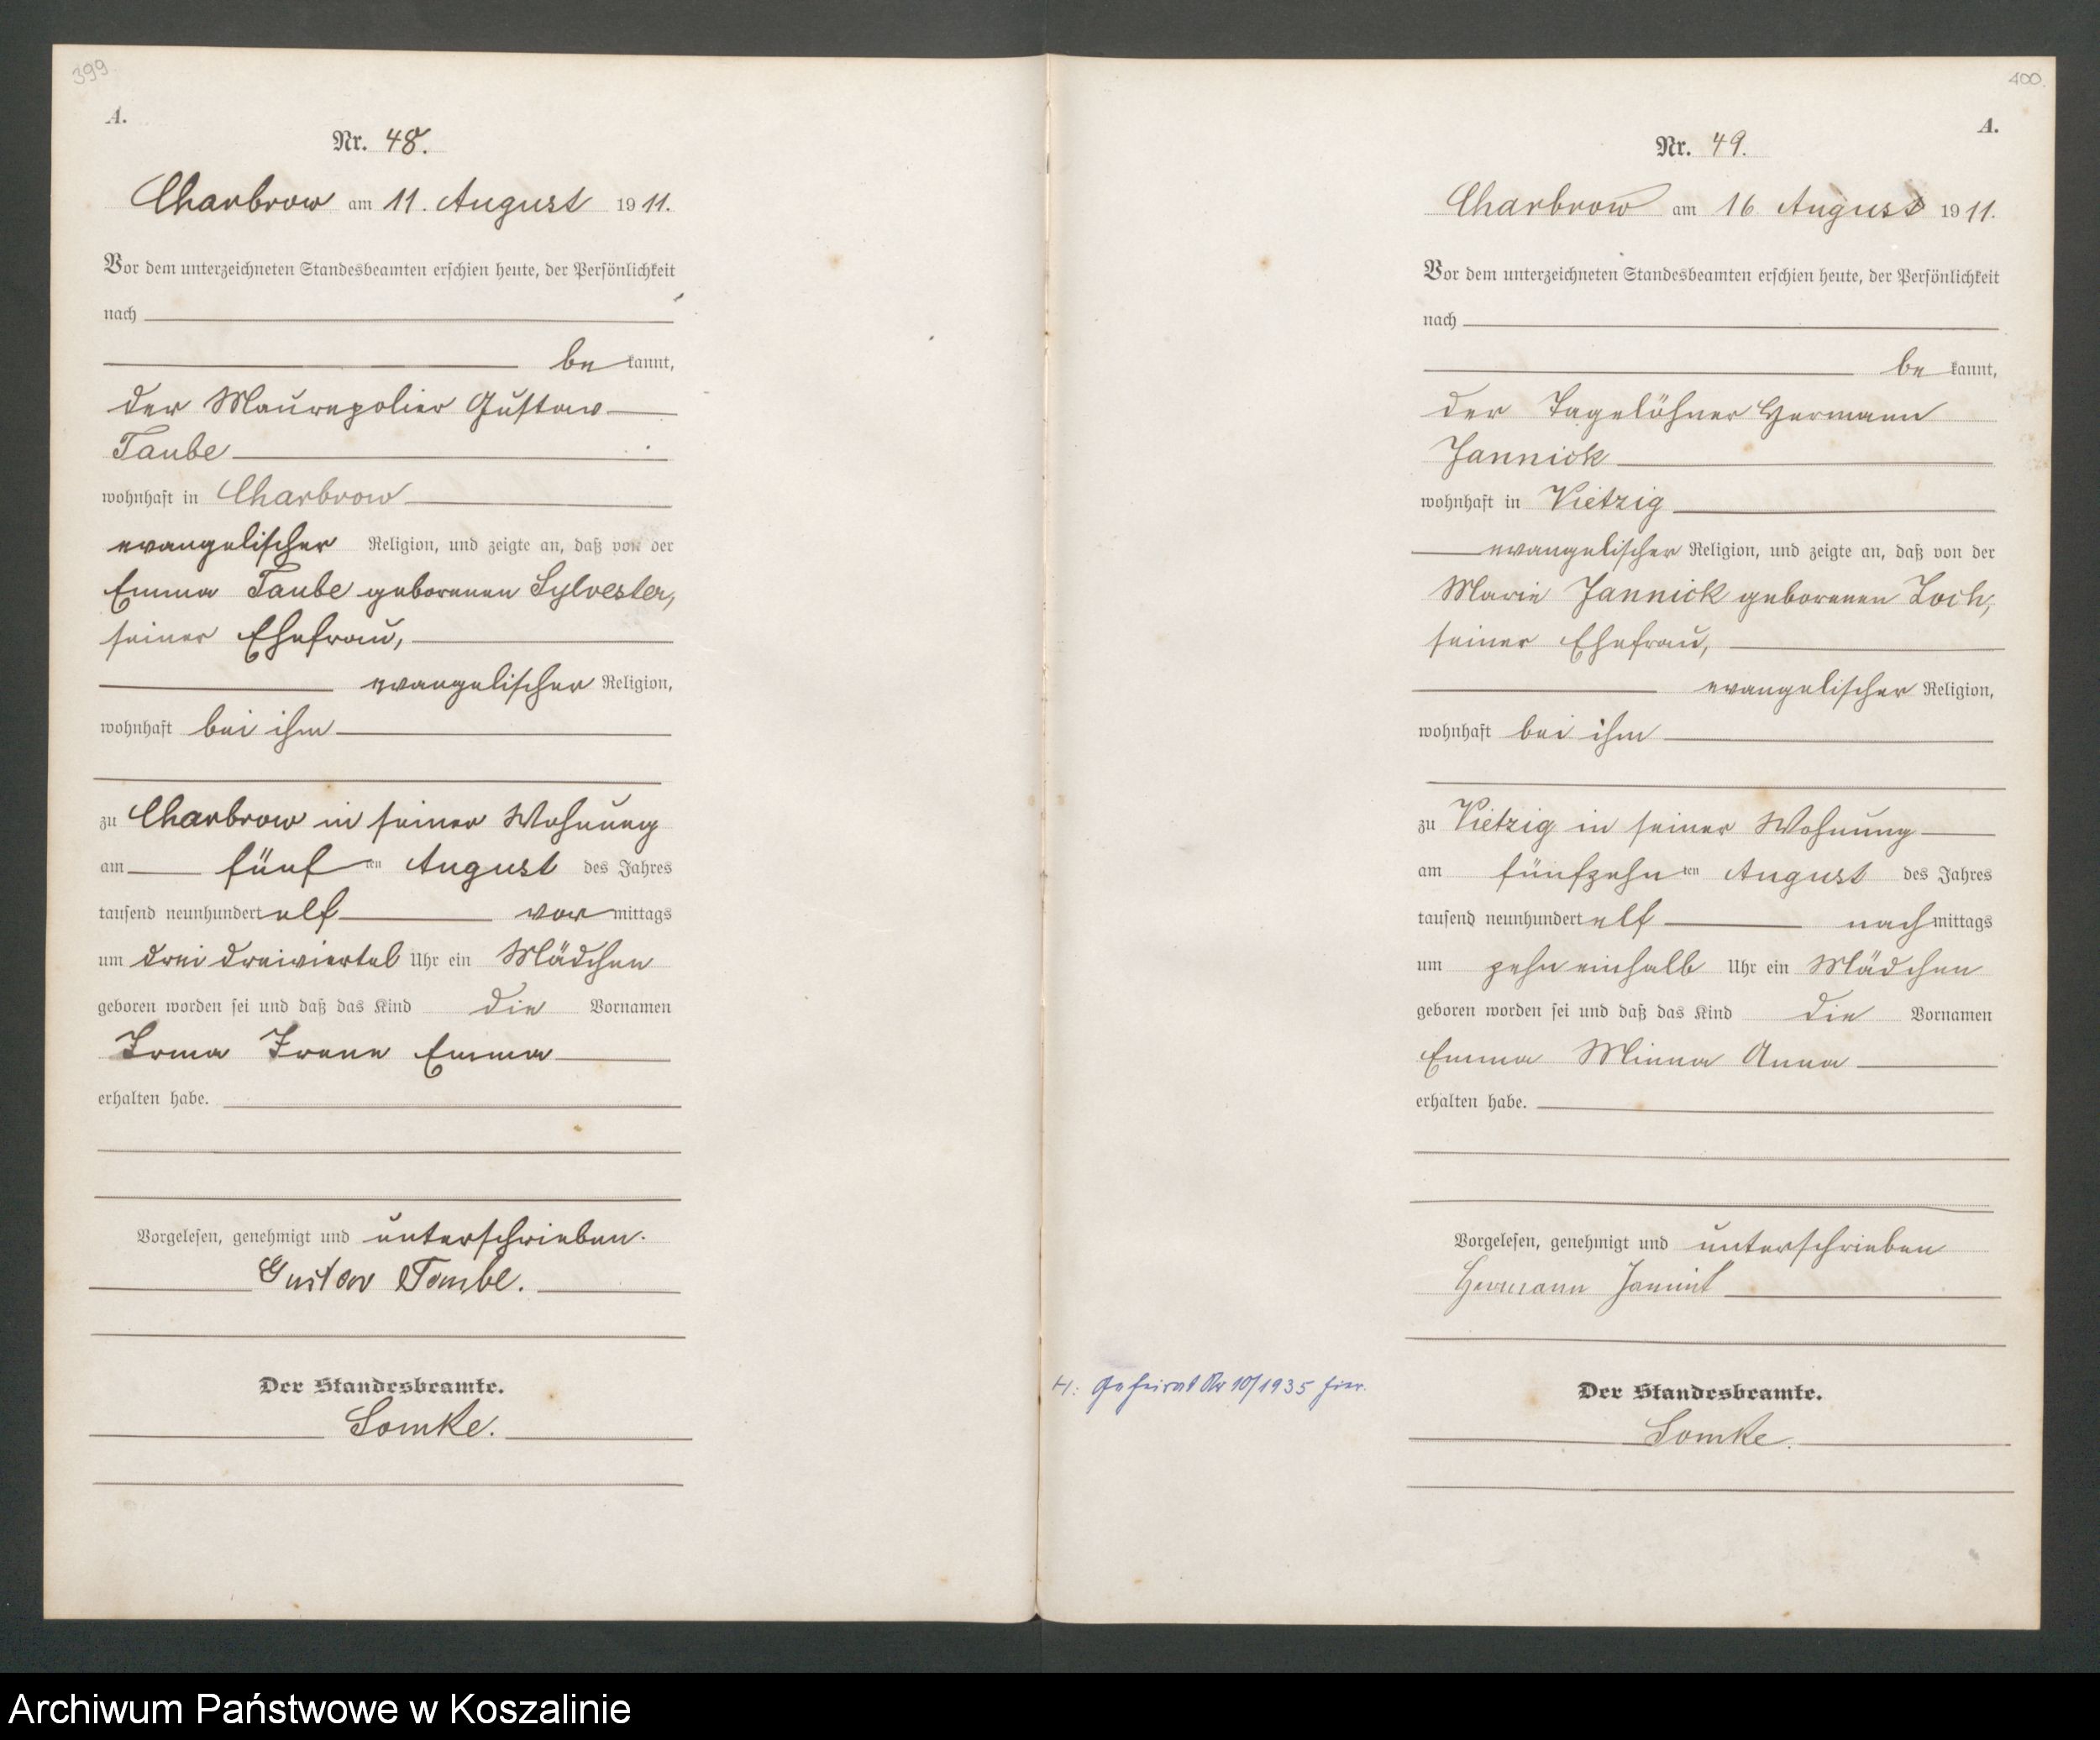 399
A.
Nr. 48.
Charbrow am 11. August 1911.
Vor dem unterzeichneten Standesbeamten erschien heute, der Persönlichkeit
nach
bekannt,
der Maurerpolier Gustav
Taube
wohnhaft in Charbrow
evangelischer Religion, und zeigte an, daß von der
Emma Taube geborenen Sylvester,
seiner Ehefrau,
evangelischer Religion,
wohnhaft bei ihm
zu Charbrow in seiner Wohnung
am fünften August des Jahres
tausend neunhundert elf vormittags
um drei dreiviertel Uhr ein Mädchen
geboren worden sei und daß das Kind die Vornamen
Irma Irene Emma
erhalten habe.
Vorgelesen, genehmigt und unterschrieben.
Gustav Taube.
Der Standesbeamte.
Somke.
400
A.
Nr. 49.
Charbrow am 16 August 1911.
Vor dem unterzeichneten Standesbeamten erschien heute, der Persönlichkeit
nach
bekannt,
der Tagelöhner Hermann
Jannick
wohnhaft in Vietzig
evangelischer Religion, und zeigte an, daß von der
Marie Jannick geborenen Zoch,
seiner Ehefrau,
evangelischer Religion,
wohnhaft bei ihm
zu Vietzig in seiner Wohnung
am fünfzehnten August des Jahres
tausend neunhundert elf nachmittags
um zehn einhalb Uhr ein Mädchen
geboren worden sei und daß das Kind die Vornamen
Emma Minna Anna
erhalten habe.
Vorgelesen, genehmigt und unterschrieben
Hermann Jannick
H: Geheirat Nr 10/1935 hier.
Der Standesbeamte.
Somke.
Archiwum Państwowe w Koszalinie